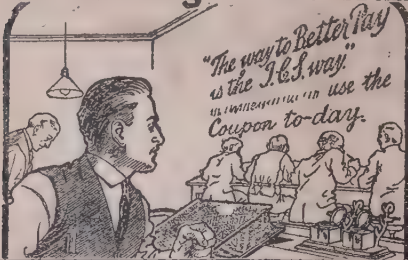 "The way to Better Pay
is the I.C.S. way."
use the
Coupon to-day.